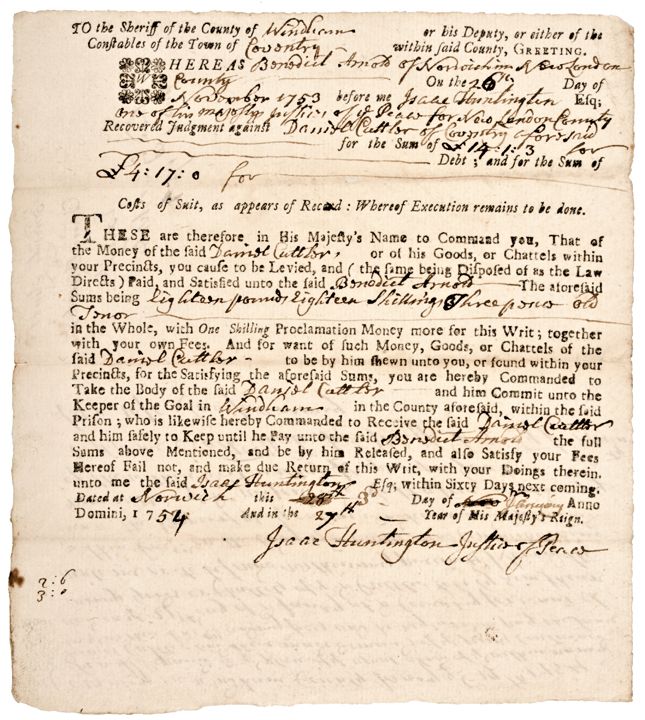 TO the Sheriff of the County of Windham or his Deputy, or either of the
Constables of the Town of Coventry within said County, GREETING.
WHEREAS Benedict Arnold of Norwich in New London
County On the 26th Day of
November 1753 before me Isaac Huntington Esq;
one of his majestys Justices of ye Peace for New London County
Recovered Judgment against Daniel Cuttler of Coventry aforesaid
for the Sum of £14:1:3 for
Debt; and for the Sum of
£4:17:0 for
Costs of Suit, as appears of Record: Whereof Execution remains to be done.
THESE are therefore in His Majesty's Name to Command you, That of
the Money of the said Daniel Cuttler, or of his Goods, or Chattels within
your Precincts, you cause to be Levied, and (the same being Disposed of as the Law
Directs) Paid, and Satisfied unto the said Benedict Arnold The aforesaid
Sums being Eighteen pounds Eighteen Shillings Three pence old
Tenor
in the Whole, with One Shilling Proclamation Money more for this Writ; together
with your own Fees. And for want of such Money, Goods, or Chattels of the
said Daniel Cuttler to be by him shewn unto you, or found within your
Precincts, for the Satisfying the aforesaid Sums, you are hereby Commanded to
Take the Body of the said Daniel Cuttler and him Commit unto the
Keeper of the Goal in Windham in the County aforesaid, within the said
Prison; who is likewise hereby Commanded to Receive the said Daniel Cuttler
and him safely to Keep until he Pay unto the said Benedict Arnold the full
Sums above Mentioned, and be by him Released, and also Satisfy your Fees
Hereof Fail not, and make due Return of this Writ, with your Doings therein.
unto me the said Isaac Huntington Esq; within Sixty Days next coming.
Dated at Norwich this 3d Day of January Anno
Domini, 1754 And in the 27th Year of His Majesty's Reign.
Isaac Huntington Justice of Peace
2:6
3:0